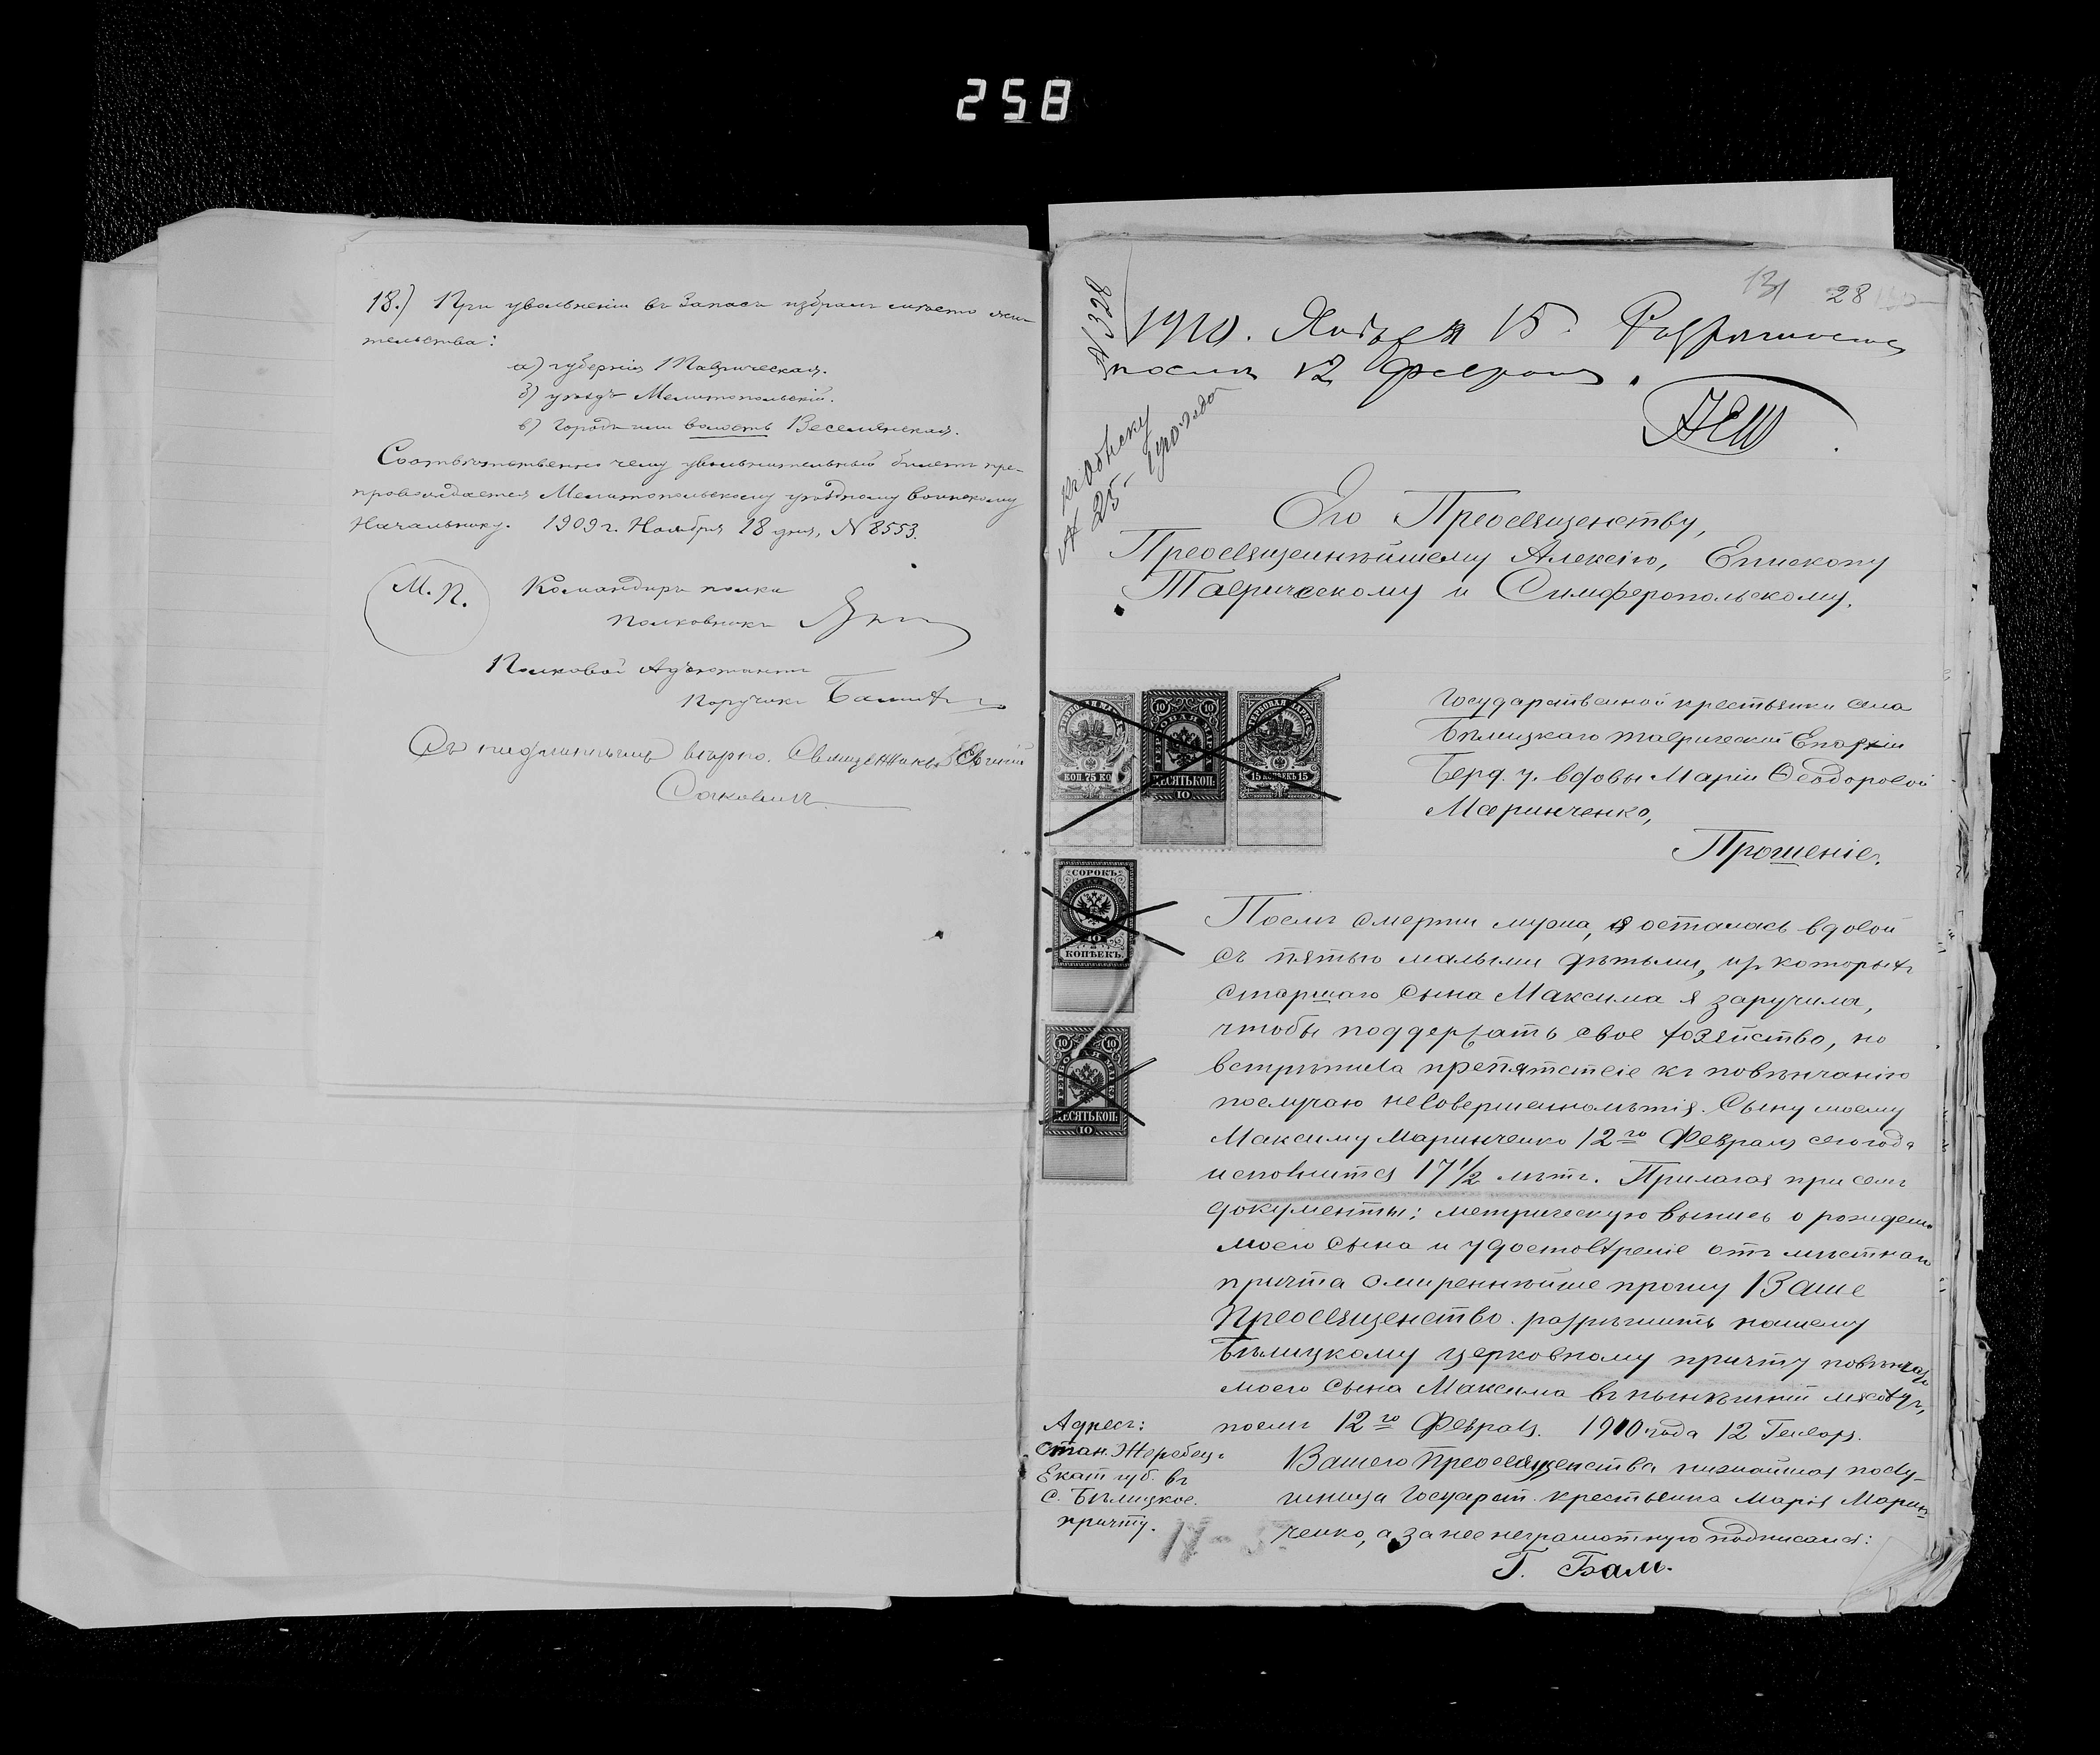 258
18.) При увольненіи въ запасъ избралъ мѣсто жи-
тельства:
а) губернія Таврическая.
б) уѣздъ Мелитопольскій.
в) Городъ или волость Веселянская.
Соотвѣтственно чему увольнительный билетъ пре-
провождается Мелитопольскому уѣздному воинскому
Начальнику. 1909 г. Ноября 18 дня, № 8553.
М. П.
Командиръ полка
Полковникъ
Полковой Адъютантъ
Поручикъ
Съ подлиннымъ вѣрно. Священникъ
Саковичъ
131 28
№ 328
1910. Января 15. Разрѣшается
послѣ 12 Февраля.
25
Его Преосвященству,
Преосвященнѣйшему Алексію, Епископу
Таврическому и Симферопольскому,
КОП. 75 КОП
10 10
ДЕСЯТЬ КОП:
10
ГЕРБОВАЯ МАРКА
15 КОПѢЕКЪ 15
Государственной крестьянки села
Бѣлицкаго Таврической Епархіи
Берд. у. вдовы Маріи Ѳеодоровой
Маринченко,
Прошеніе.
СОРОКЪ
40
КОПѢЕКЪ
10 10
ДЕСЯТЬ КОП:
10
Послѣ смерти мужа, я осталась вдовой
съ пятью малыми дѣтьми, изъ которыхъ
старшаго сына Максима я заручила,
чтобы поддержать свое хозяйство, но
встрѣтила препятствіе къ повѣнчанію
послучаю несовершеннолѣтія. Сыну моему
Максиму Маринченко 12го Февраля сего года
исполнится 17 1/2 лѣтъ. Прилагая при семъ
документы: метрическую выпись о рожденіи
моего сына и удостовѣреніе отъ мѣстнаго
причта смиреннѣйше прошу Ваше
Преосвященство разрѣшить нашему
Бѣлицкому церковному причту повѣнчать
моего сына Максима въ нынѣшній мясоѣдъ,
послѣ 12го Февраля. 1910 года 12 Генваря.
Вашего Преосвященства нижайшая послу-
шница Государств. крестьянка Марія Марин-
ченко, а за нее неграмотную подписался:
Г. Бам.
Адресъ:
стан. Жеребецъ
Екат. губ. въ
с. Бѣлицкое.
причту.